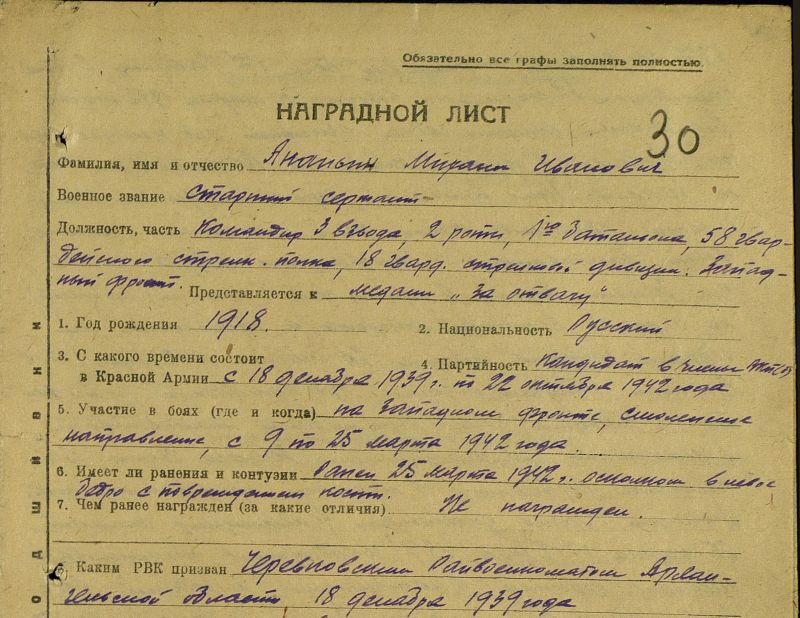 Обязательно все графы заполнять полностью.
НАГРАДНОЙ ЛИСТ
30
Фамилия, имя и отчество Ананьин Михаил Иванович
Военное звание старший сержант
Должность, часть Командир 3 взвода, 2 роты, 1го батальона, 58 гвар-
дейского стрелк. полка, 18 гвард. стрелковой дивизии. Запад-
ный фронт.
Представляется к медали „За отвагу"
1. Год рождения 1918.
2. Национальность Русский
3. С какого времени состоит
в Красной Армии с 18 декабря 1939 г. по 22 октября 1942 года
4. Партийность Кандидат в члены ВКП(б)
5. Участие в боях (где и когда) на Западном фронте, смоленское
направление, с 9 по 25 марта 1942 года.
6. Имеет ли ранения и контузии Ранен 25 марта 1942 г. осколком в левое
бедро с повреждением кости.
7. Чем ранее награжден (за какие отличия) Не награжден.
8. Каким РВК призван Черевковским Райвоенкоматом Архан-
гельской области 18 декабря 1939 года
о д ш и в к и